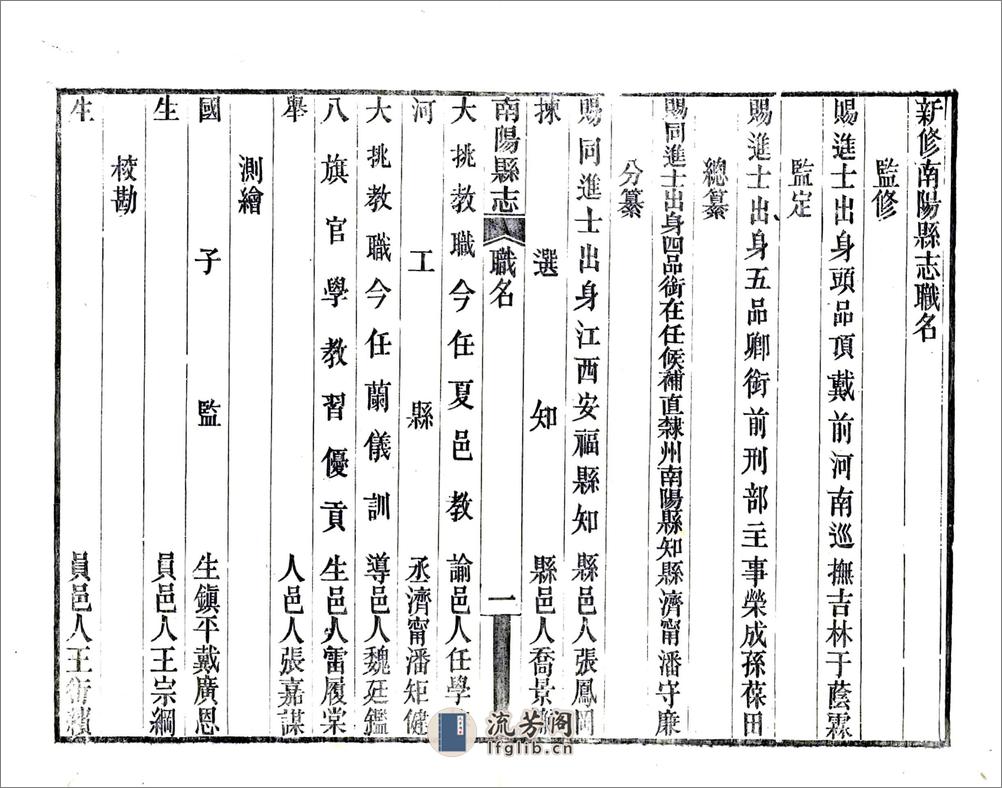 新修南陽縣志職名
監修
賜進士出身頭品頂戴前河南巡撫吉林于蔭霖
監定
賜進士出身五品卿銜前刑部主事榮成孫葆田
總纂
賜同進士出身四品銜在任候補直隸州南陽縣知縣濟甯潘守廉
分纂
賜同進士出身江西安福縣知縣邑人張鳳岡
揀選知縣邑人喬景
南陽縣志
職名
一
大挑教職今任夏邑教諭邑人任學
河工縣丞濟甯潘矩健
大挑教職今任蘭儀訓導邑人魏廷鑑
八旗官學教習優貢生邑人雷履棠
舉人邑人張嘉謀
測繪
國子監生鎮平戴廣恩
生員邑人王宗綱
校勘
生員邑人王
流芳阁
lfglib.cn